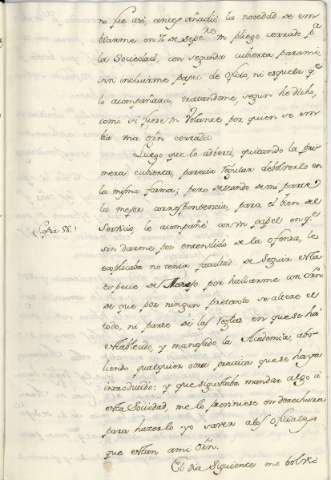 no fue asi, antes añadió la novedad de em
biarme en 7. de sepre. un pliego cerrado pa.
la Sociedad, con segunda cubierta para mi
sin incluirme papel de oficio, ni esquela qe.
lo acompañara, tratandome segun he dicho,
como si fuese un Volante por quien se em
bia una orn. cerrada.
Luego que lo advertí, quitando la pri
mera cubierta, parecia regular debolverlo en
la misma forma; pero deseando de mi parte
la mejor correspondencia, para el bien del
Copia N.
Servicio, le acompañé con un papel en qe.
sin darme por entendido de la ofensa, le
explicaba no tenia facultad de seguir esta
especie de por hallarme con orn.
de que por ningun pretexto se altere el
todo, ni parte de las reglas en que se ha
establecido, y mandado la Academia, abo
liendo qualquiera otra practica que se haya
introducido; y que si gustaba mandar algo á
esta Sociedad, me lo previniese en derechura
para hacerlo yo saver a los oficiales
que estan a mi orn.
El dia siguiente me bolvió